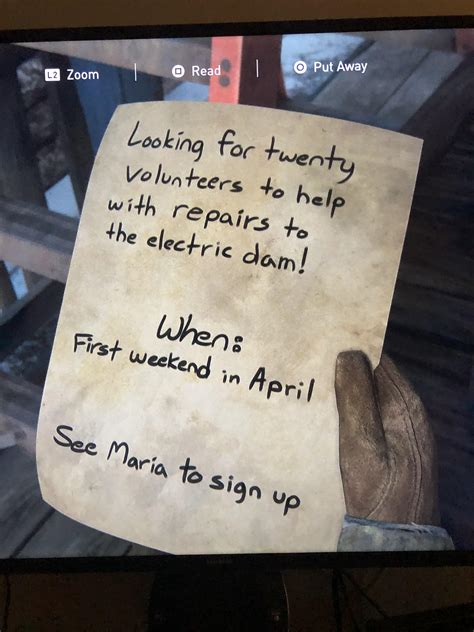 L2 Zoom | Read | Put Away
Looking for twenty
volunteers to help
with repairs to
the electric dam!
When:
First weekend in April
See Maria to sign up